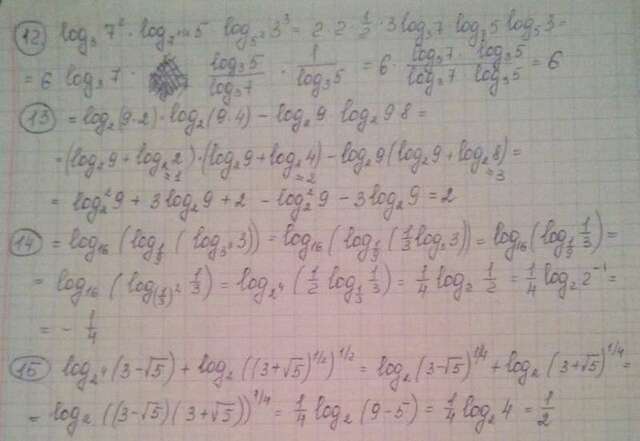 12) log₃ 7² · log₇¹ᐟ² 5 log₅² 3³ = 2·2·½·3 log₃7 log₇5 log₅3 =
= 6 log₃7 · log₃5/log₃7 · 1/log₃5 = 6 · (log₃7 · log₃5)/(log₃7 log₃5) = 6
13) = log₂(9·2)·log₂(9·4) − log₂9 · log₂9·8 =
= (log₂9 + log₂2)·(log₂9 + log₂4) − log₂9(log₂9 + log₂8) =
=1 =2 =3
= log₂²9 + 3log₂9 + 2 − log₂²9 − 3log₂9 = 2
14) = log₁₆(log_{1/9}(log_{3³}3)) = log₁₆(log_{1/9}(⅓log₃3)) = log₁₆(log_{1/9} ⅓) =
= log₁₆(log_{(1/3)²} ⅓) = log_{2⁴}(½ log_{1/3} ⅓) = ¼ log₂ ½ = ¼ log₂ 2⁻¹ =
= − ¼
15) log_{2⁴}(3−√5) + log₂((3+√5)^{1/2})^{1/2} = log₂(3−√5)^{1/4} + log₂(3+√5)^{1/4} =
= log₂((3−√5)(3+√5))^{1/4} = ¼ log₂(9−5) = ¼ log₂4 = ½